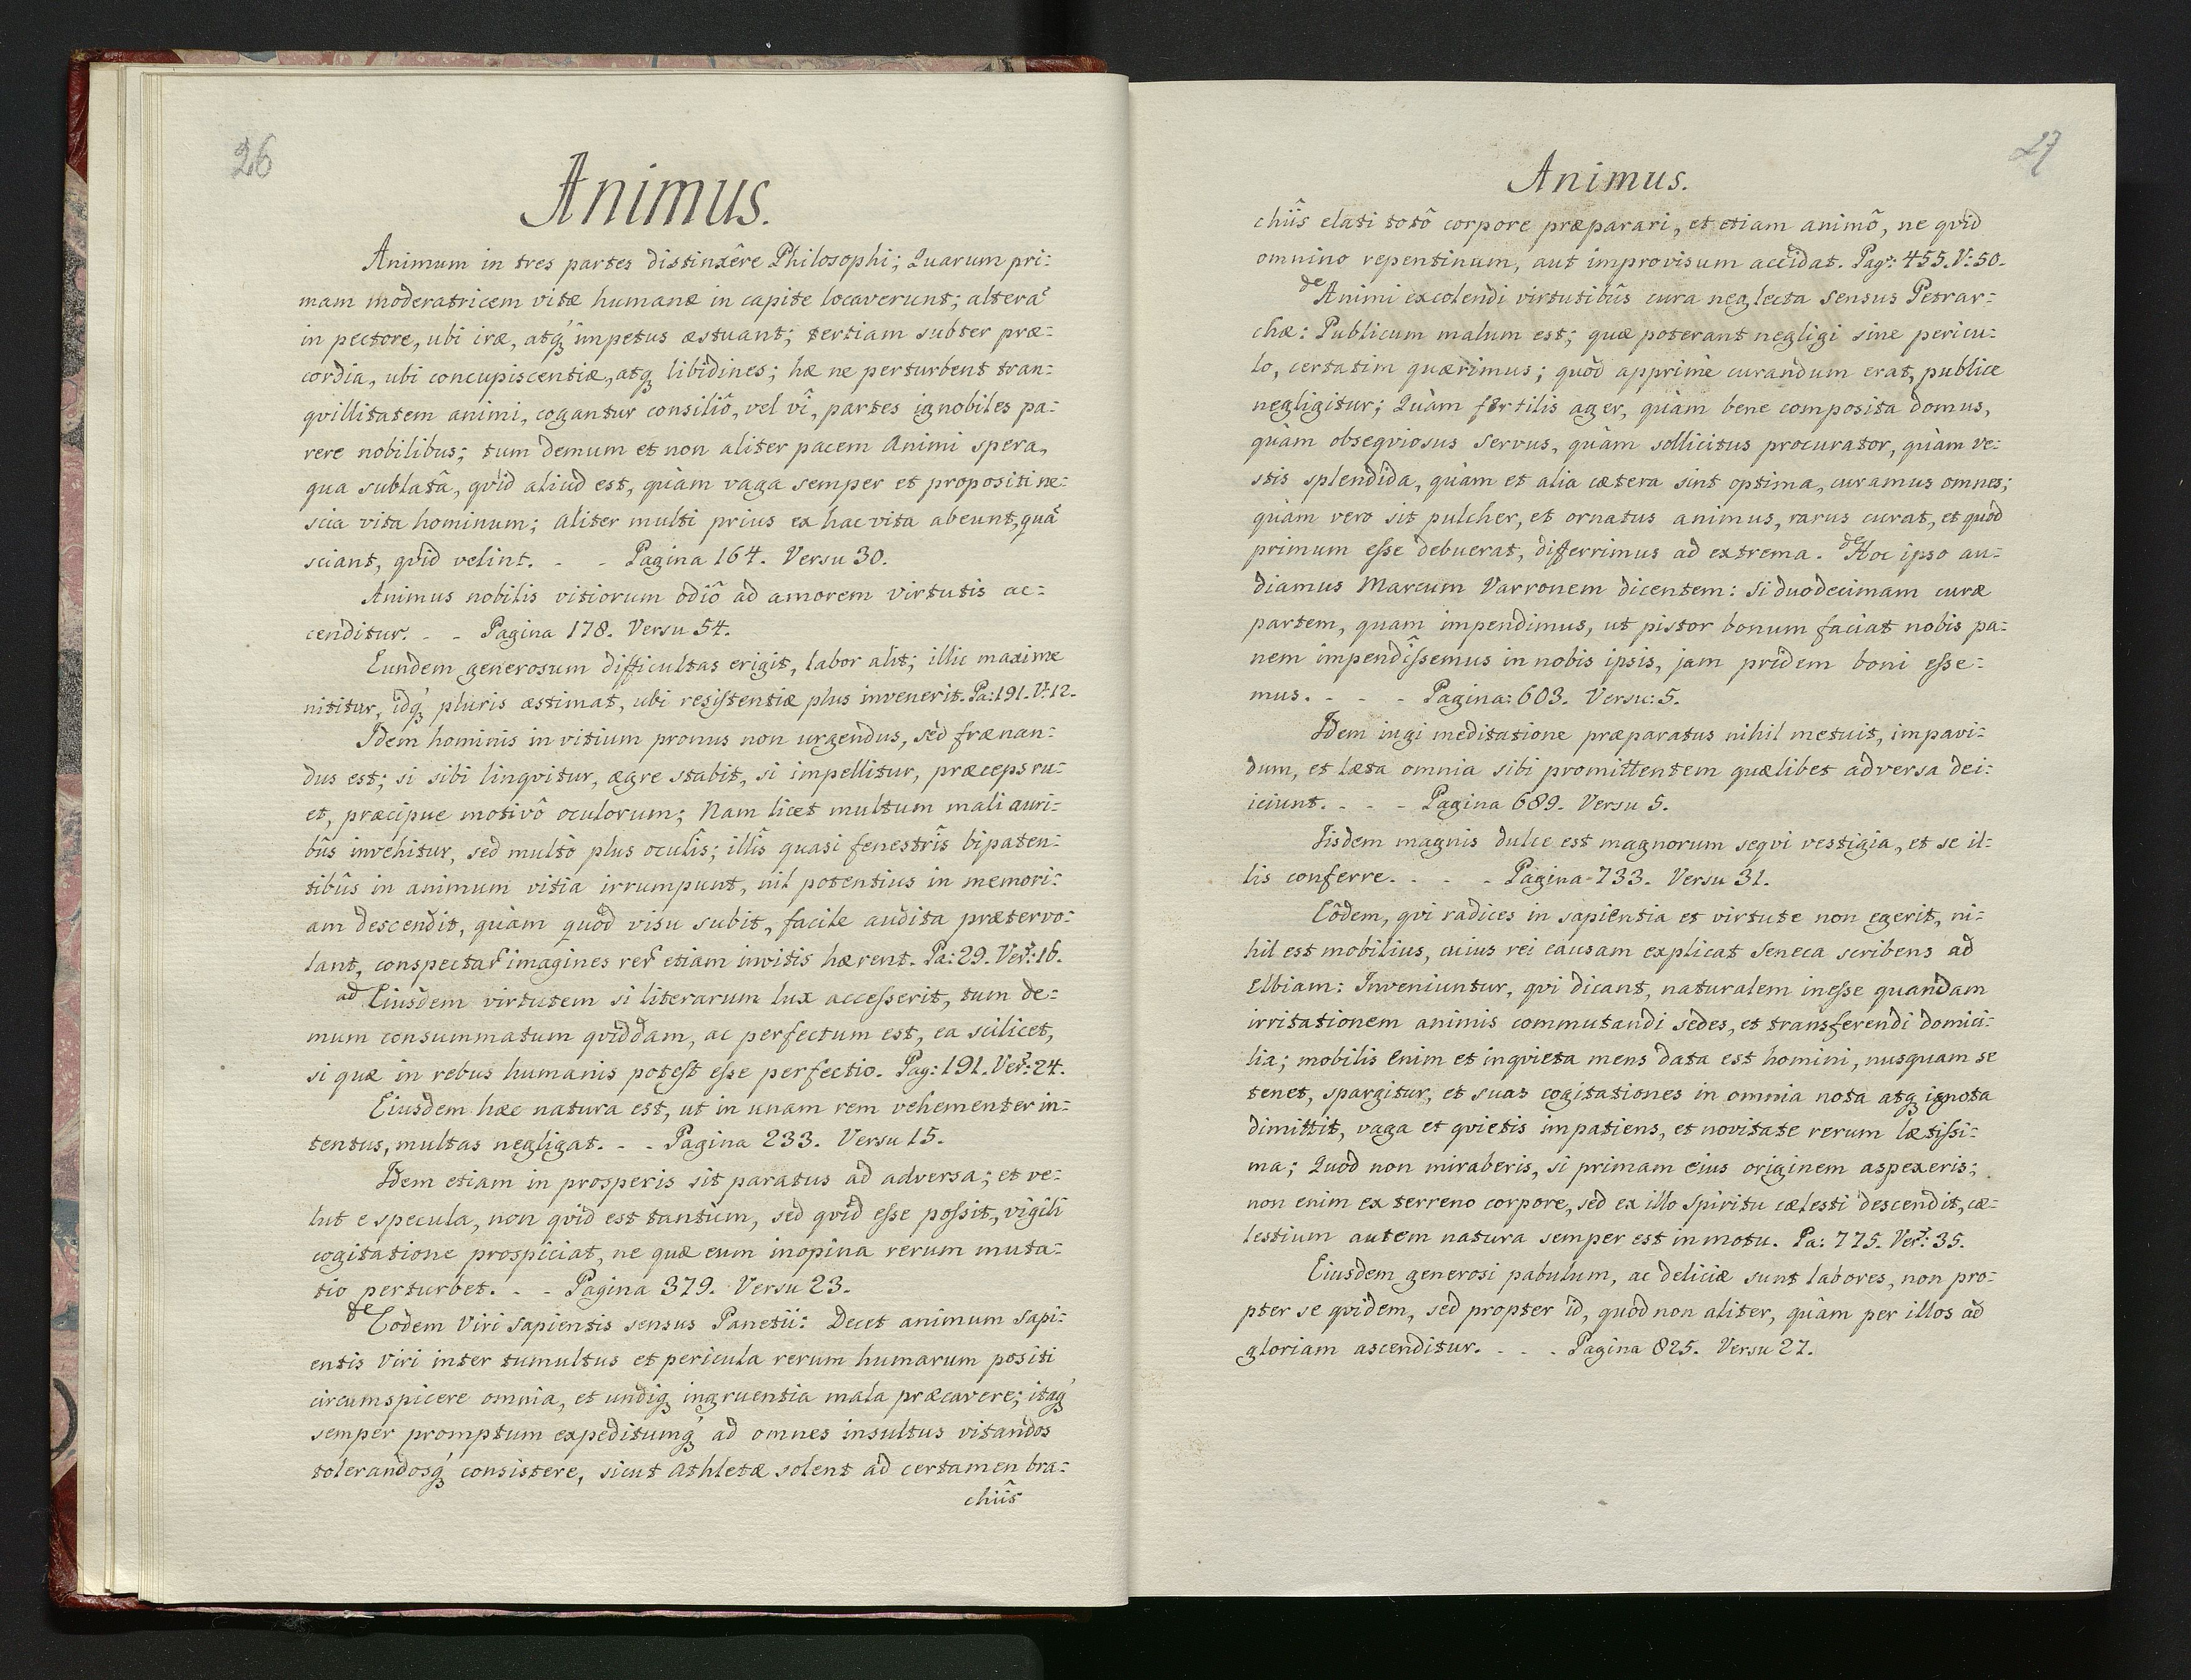 26
Animus.
Animum in tres partes distinxêre Philosophi; Quarum pri=
mam moderatricem vitæ humanæ in capite locaverunt; alterã
in pectore, ubi iræ, atq́ꝫ impetus æstuant; tertiam subter præ=
cordia, ubi concupiscentiæ, atqꝫ libidines; hæ ne perturbent tran=
qvillitatem animi, cogantur consiliô, vel vî, partes ignobiles pa=
rere nobilibus; tum demum et non aliter pacem Animi spera,
qua sublatâ, qvid aliud est, quàm vaga semper et propositi ne=
scia vita hominum; Aliter multi prius ex hac vita abeunt, quã
sciant, qvid velint. - - Pagina 164. Versu 30.
Animus nobilis vitiorum odiô ad amorem virtutis ac=
cenditur. - - Pagina 178. Versu 54.
Eundem generosum difficultas erigit, labor alit; illic maxime
nititur, idq́ꝫ pluris æstimat, ubi resistentiæ plus invenerit. Pa: 191. V: 12.
Idem hominis in vitium pronus non urgendus, sed frænan=
dus est; si sibi linqvitur, ægre stabit, si impellitur, præceps ru=
et, præcipue motivô oculorum; Nam licet multum mali auri=
bûs invehitur, sed multò plus oculîs; illîs quasi fenestrîs bipaten=
tibûs in animum vitia irrumpunt, nil potentius in memori=
am descendit, quàm quòd visu subit, facile audita prætervo=
lant, conspectar̃ imagines rer̃ etiam invitis hærent. Pa: 29. Ver: 16.
ad Eiusdem virtutem si literarum lux accesserit, tum de=
mum consummatum qviddam, ac perfectum est, ea scilicet,
si quæ in rebus humanis potest esse perfectio. Pag: 191. Ver: 24.
Eiusdem hæc natura est, ut in unam rem vehementer in=
tentus, multas negligat. - - Pagina 233. Versu 15.
Idem etiam in prosperis sit paratus ad adversa; et ve=
lut e specula, non qvid est tantùm, sed qvid esse possit, vigili
cogitatione prospiciat, ne quæ eum inopina rerum muta=
tio perturbet. - - Pagina 379. Versu 23.
de Eôdem Viri Sapientis sensus Panetii: Decet animum Sapi=
entis Viri inter tumultus et pericula rerum humarum positi
circumspicere omnia, et undiqꝫ ingruentia mala præcavere; itaq́ꝫ
semper promptum expeditumq́ꝫ ad omnes insultus vitandos
tolerandosq́ꝫ consistere, sicut Athletæ solent ad certamen bra=
chiîs
27
Animus.
chiîs elati totô corpore præparari, et etiam animô, ne qvid
omnino repentinum, aut improvisum accidat. Pag: 455. V: 50.
de Animi excolendi virtutibûs cura neglecta sensus Petrar=
chæ: Publicum malum est; quæ poterant negligi sine pericu=
lo, certatim quærimus; quòd apprimè curandum erat, publice
negligitur; Quàm fertilis ager, quàm bene composita domus,
quàm obseqviosus servus, quàm sollicitus procurator, quàm ve=
stis splendida, quàm et alia cætera sint optima, curamus omnes;
quàm vero sit pulcher, et ornatus animus, rarus curat, et quòd
primum esse debuerat, differrimus ad extrema. de Hoc ipso au=
diamus Marcum Varronem dicentem: Si duodecimam curæ
partem, quam impendimus, ut pistor bonum faciat nobis pa=
nem impendîssemus in nobis ipsis, jam pridem boni esse=
mus. - - - Pagina: 603. Versu: 5.
Idem iugi meditatione præparatus nihil metuit, impavi=
dum, et læta omnia sibi promittentem quælibet adversa dei=
iciunt. - - - Pagina 689. Versu 5.
Iisdem magnis dulce est magnorum seqvi vestigia, et se il=
lis conferre. - - - Pagina 733. Versu 31.
Eôdem, qvi radices in sapientia et virtute non egerit, ni=
hil est mobilius, cuius rei causam explicat Seneca scribens ad
Elbiam: Inveniuntur, qvi dicant, naturalem inesse quandam
irritationem animis commutandi sedes, et transferendi domici=
lia; mobilis enim et inqvieta mens data est homini, nusquam se
tenet, spargitur, et suas cogitationes in omnia nota atqꝫ ignota
dimittit, vaga et qvietis impatiens, et novitate rerum lætissi=
ma; Quod non miraberis, si primam eius originem aspexeris;
non enim ex terreno corpore, sed ex illo Spiritu cælesti descendit, cæ=
lestium autem natura semper est in motu. Pa: 775. Ver: 35.
Eiusdem generosi pabulum, ac deliciæ sunt labores, non pro=
pter se qvidem, sed propter id, quòd non aliter, quàm per illos ad
gloriam ascenditur. - - - Pagina 825. Versu 27.